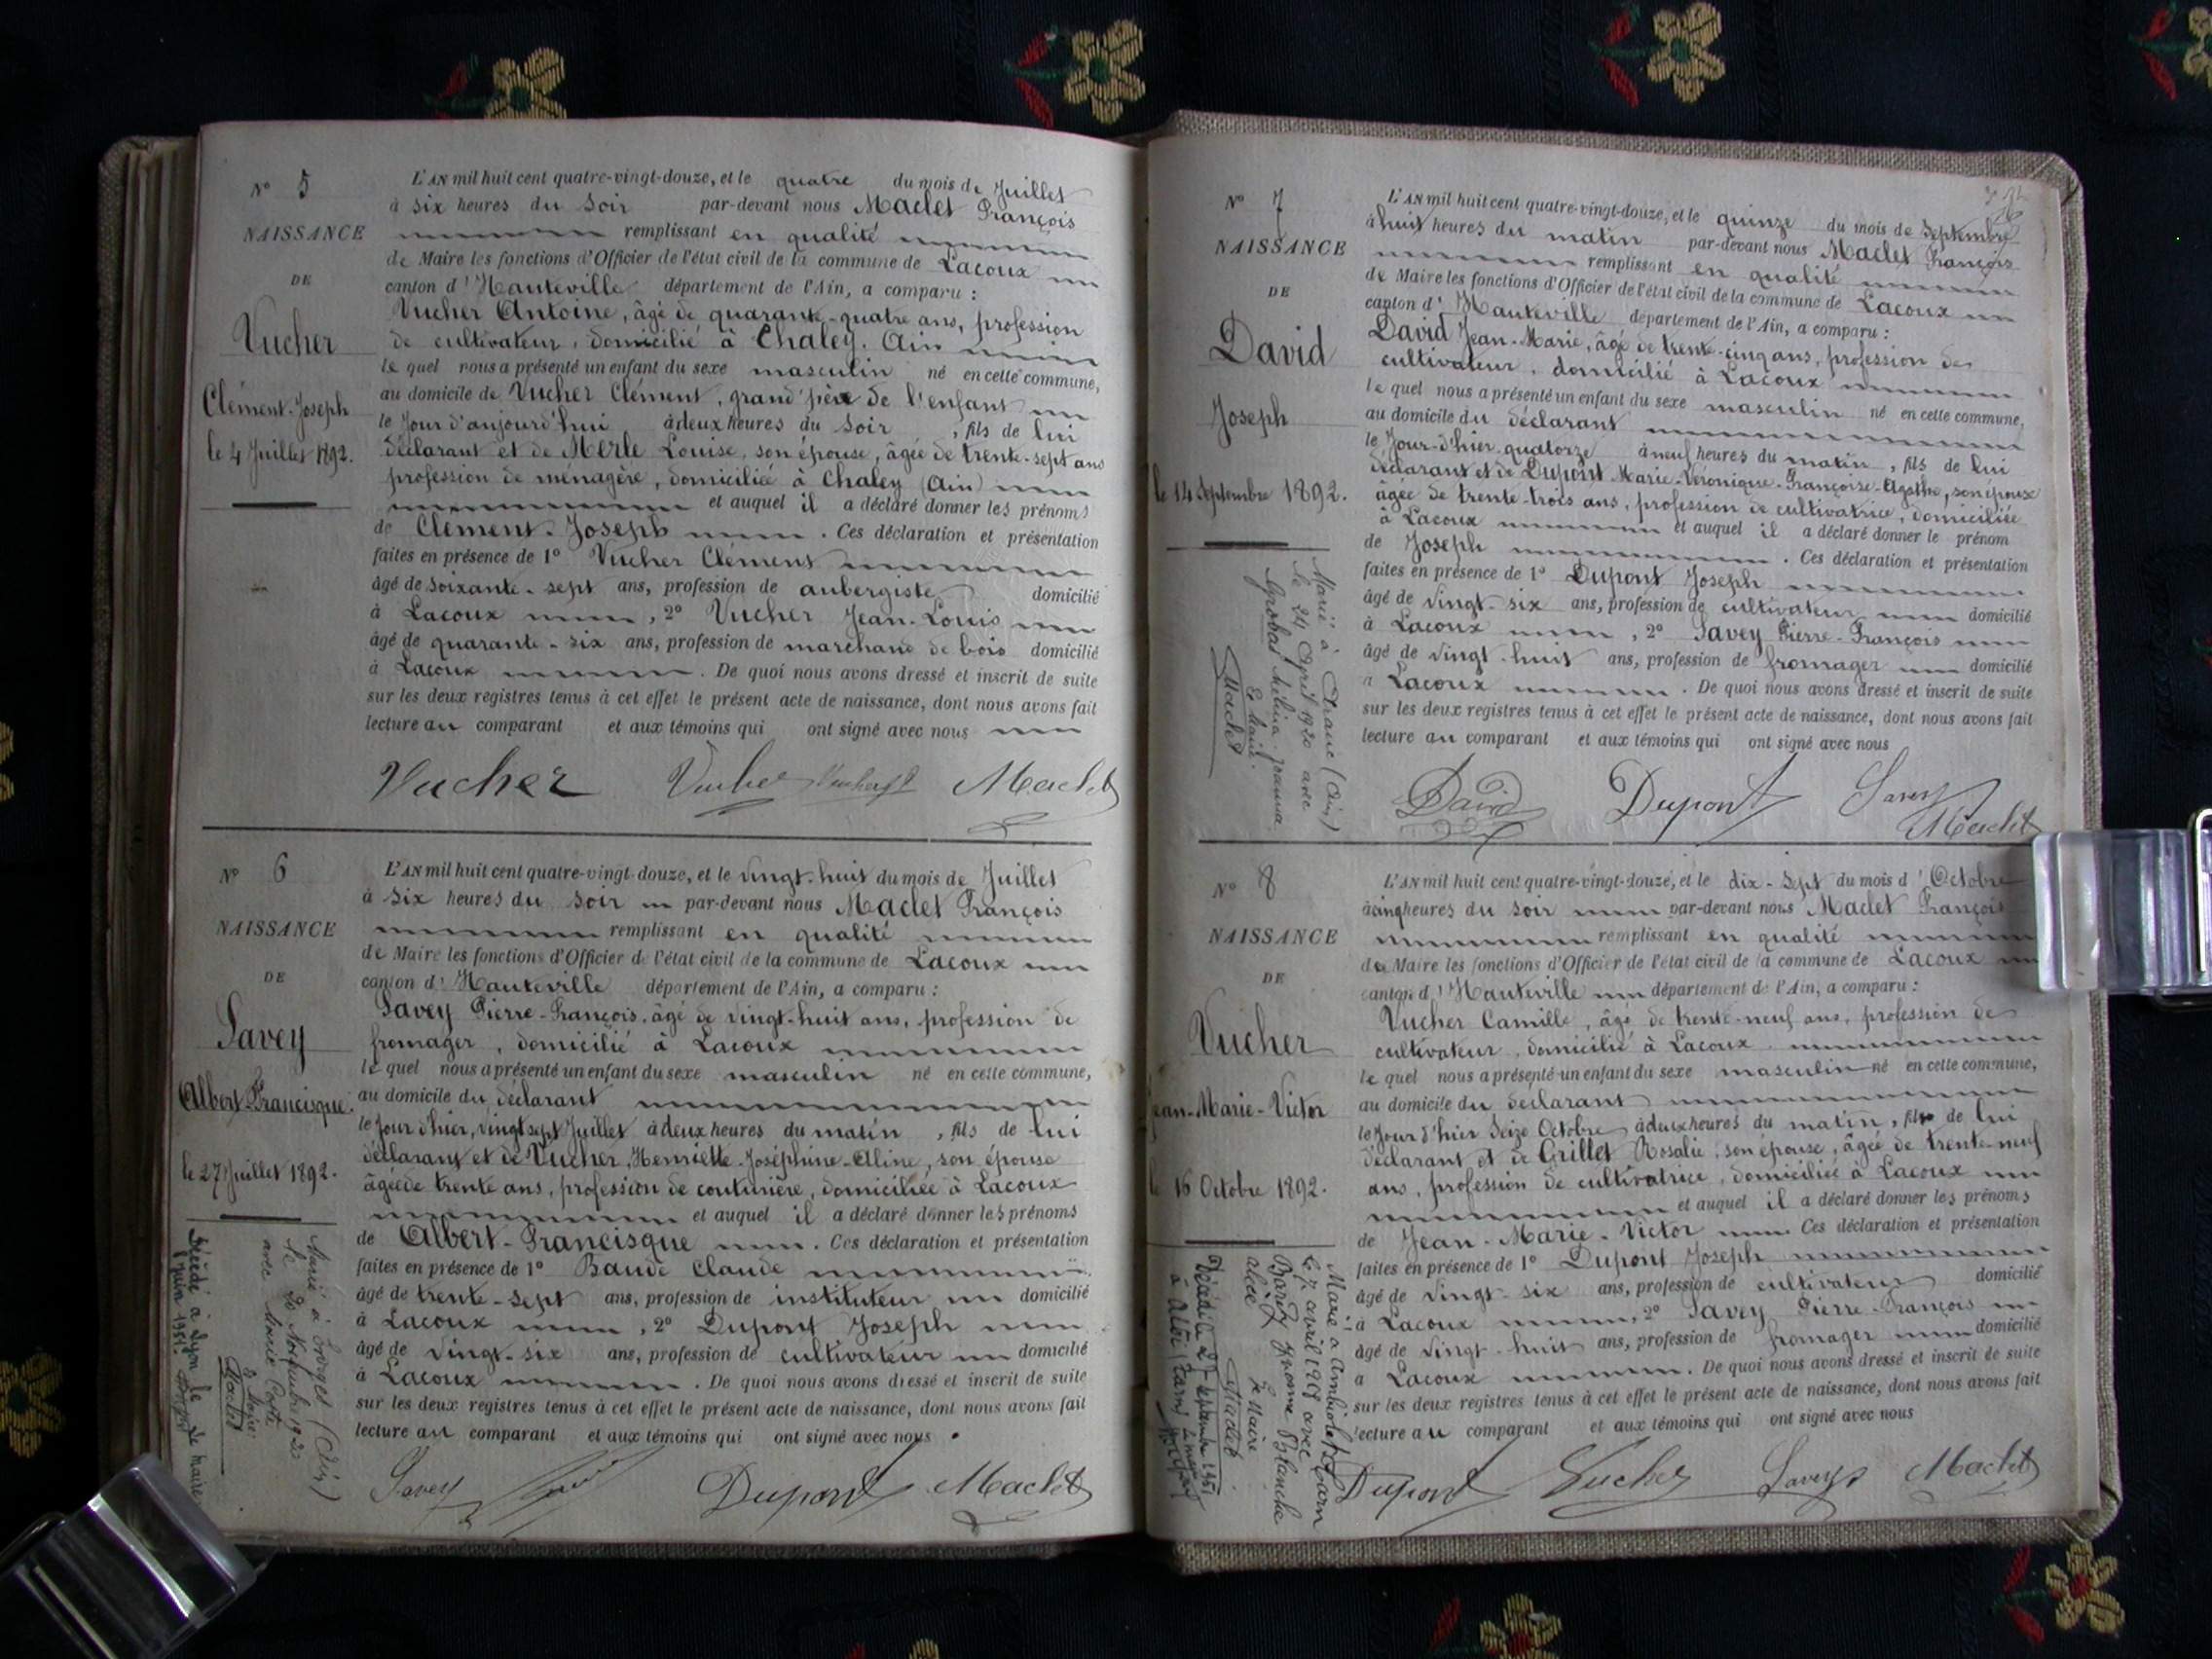 N° 5
NAISSANCE
DE
Vucher
Clément-Joseph
le 4 Juillet 1892.
L'AN mil huit cent quatre-vingt-douze, et le quatre du mois de Juillet
à six heures du soir par-devant nous Maclet François
remplissant en qualité
de Maire les fonctions d'Officier de l'état civil de la commune de Lacoux
canton d'Hauteville département de l'Ain, a comparu :
Vucher Antoine, âgé de quarante-quatre ans, profession
de cultivateur, domicilié à Chaley. Ain
lequel nous a présenté un enfant du sexe masculin né en cette commune,
au domicile de Vucher Clément, grand père de l'enfant
le Jour d'aujourd'hui à deux heures du soir, fils de lui
déclarant et de Merle Louise, son épouse, âgée de trente-sept ans
profession de ménagère, domiciliée à Chaley (Ain)
et auquel il a déclaré donner les prénoms
de Clément-Joseph. Ces déclaration et présentation
faites en présence de 1° Vucher Clément
âgé de soixante-sept ans, profession de aubergiste domicilié
à Lacoux, 2° Vucher Jean-Louis
âgé de quarante-six ans, profession de marchand de bois domicilié
à Lacoux. De quoi nous avons dressé et inscrit de suite
sur les deux registres tenus à cet effet le présent acte de naissance, dont nous avons fait
lecture au comparant et aux témoins qui ont signé avec nous
Vucher Vucher Maclet
N° 6
NAISSANCE
DE
Savey
Albert-Francisque.
le 27 Juillet 1892.
Marié à (Ain)
le 20 Novembre 1920
avec
Le Maire
Maclet
Décédé à Lyon le
juin 1951. Le Maire
L'AN mil huit cent quatre-vingt-douze, et le vingt-huit du mois de Juillet
à six heures du soir par-devant nous Maclet François
remplissant en qualité
de Maire les fonctions d'Officier de l'état civil de la commune de Lacoux
canton d'Hauteville département de l'Ain, a comparu :
Savey Pierre-François, âgé de vingt-huit ans, profession de
fromager, domicilié à Lacoux
lequel nous a présenté un enfant du sexe masculin né en cette commune,
au domicile du déclarant
le Jour d'hier, vingt sept Juillet à deux heures du matin, fils de lui
déclarant et de Vucher, Henriette-Joséphine-Aline, son épouse
âgée de trente ans, profession de couturière, domiciliée à Lacoux
et auquel il a déclaré donner les prénoms
de Albert-Francisque. Ces déclaration et présentation
faites en présence de 1° Baude Claude
âgé de trente-sept ans, profession de instituteur domicilié
à Lacoux, 2° Dupont Joseph
âgé de vingt-six ans, profession de cultivateur domicilié
à Lacoux. De quoi nous avons dressé et inscrit de suite
sur les deux registres tenus à cet effet le présent acte de naissance, dont nous avons fait
lecture au comparant et aux témoins qui ont signé avec nous.
Savey Dupont Maclet
N° 7
NAISSANCE
DE
David
Joseph
le 14 Septembre 1892.
Marié à (Ain)
le 24 Avril 1920 avec
Le Maire.
Maclet
L'AN mil huit cent quatre-vingt-douze, et le quinze du mois de Septembre
à huit heures du matin par-devant nous Maclet François
remplissant en qualité
de Maire les fonctions d'Officier de l'état civil de la commune de Lacoux
canton d'Hauteville département de l'Ain, a comparu :
David Jean-Marie, âgé de trente-cinq ans, profession de
cultivateur, domicilié à Lacoux
lequel nous a présenté un enfant du sexe masculin né en cette commune,
au domicile du déclarant
le Jour-d'hier quatorze à neuf heures du matin, fils de lui
déclarant et de Dupont Marie-Véronique-Françoise-Agathe, son épouse
âgée de trente-trois ans, profession de cultivatrice, domiciliée
à Lacoux et auquel il a déclaré donner le prénom
de Joseph. Ces déclaration et présentation
faites en présence de 1° Dupont Joseph
âgé de vingt-six ans, profession de cultivateur domicilié
à Lacoux, 2° Savey Pierre-François
âgé de vingt-huit ans, profession de fromager domicilié
à Lacoux. De quoi nous avons dressé et inscrit de suite
sur les deux registres tenus à cet effet le présent acte de naissance, dont nous avons fait
lecture au comparant et aux témoins qui ont signé avec nous
David Dupont Savey
Maclet
N° 8
NAISSANCE
DE
Vucher
Jean-Marie-Victor
le 16 Octobre 1892.
Marié à Ambialet Tarn
le 7 avril 1918 avec
Bardy Yvonne Blanche
Alice
Le Maire
Maclet
Décédé le 27 septembre 1951
à Albi (Tarn)
L'AN mil huit cent quatre-vingt-douze, et le dix-sept du mois d'Octobre
à cinq heures du soir par-devant nous Maclet François
remplissant en qualité
de Maire les fonctions d'Officier de l'état civil de la commune de Lacoux
canton d'Hauteville département de l'Ain, a comparu :
Vucher Camille, âgé de trente-neuf ans, profession de
cultivateur, domicilié à Lacoux
lequel nous a présenté un enfant du sexe masculin né en cette commune,
au domicile du déclarant
le Jour d'hier Seize Octobre à deux heures du matin, fils de lui
déclarant et de Grillet Rosalie, son épouse, âgée de trente-neuf
ans, profession de cultivatrice, domiciliée à Lacoux
et auquel il a déclaré donner les prénoms
de Jean-Marie-Victor Ces déclaration et présentation
faites en présence de 1° Dupont Joseph
âgé de vingt-six ans, profession de cultivateur domicilié
à Lacoux, 2° Savey Pierre-François
âgé de vingt-huit ans, profession de fromager domicilié
à Lacoux. De quoi nous avons dressé et inscrit de suite
sur les deux registres tenus à cet effet le présent acte de naissance, dont nous avons fait
lecture au comparant et aux témoins qui ont signé avec nous
Dupont Vucher Savey Maclet